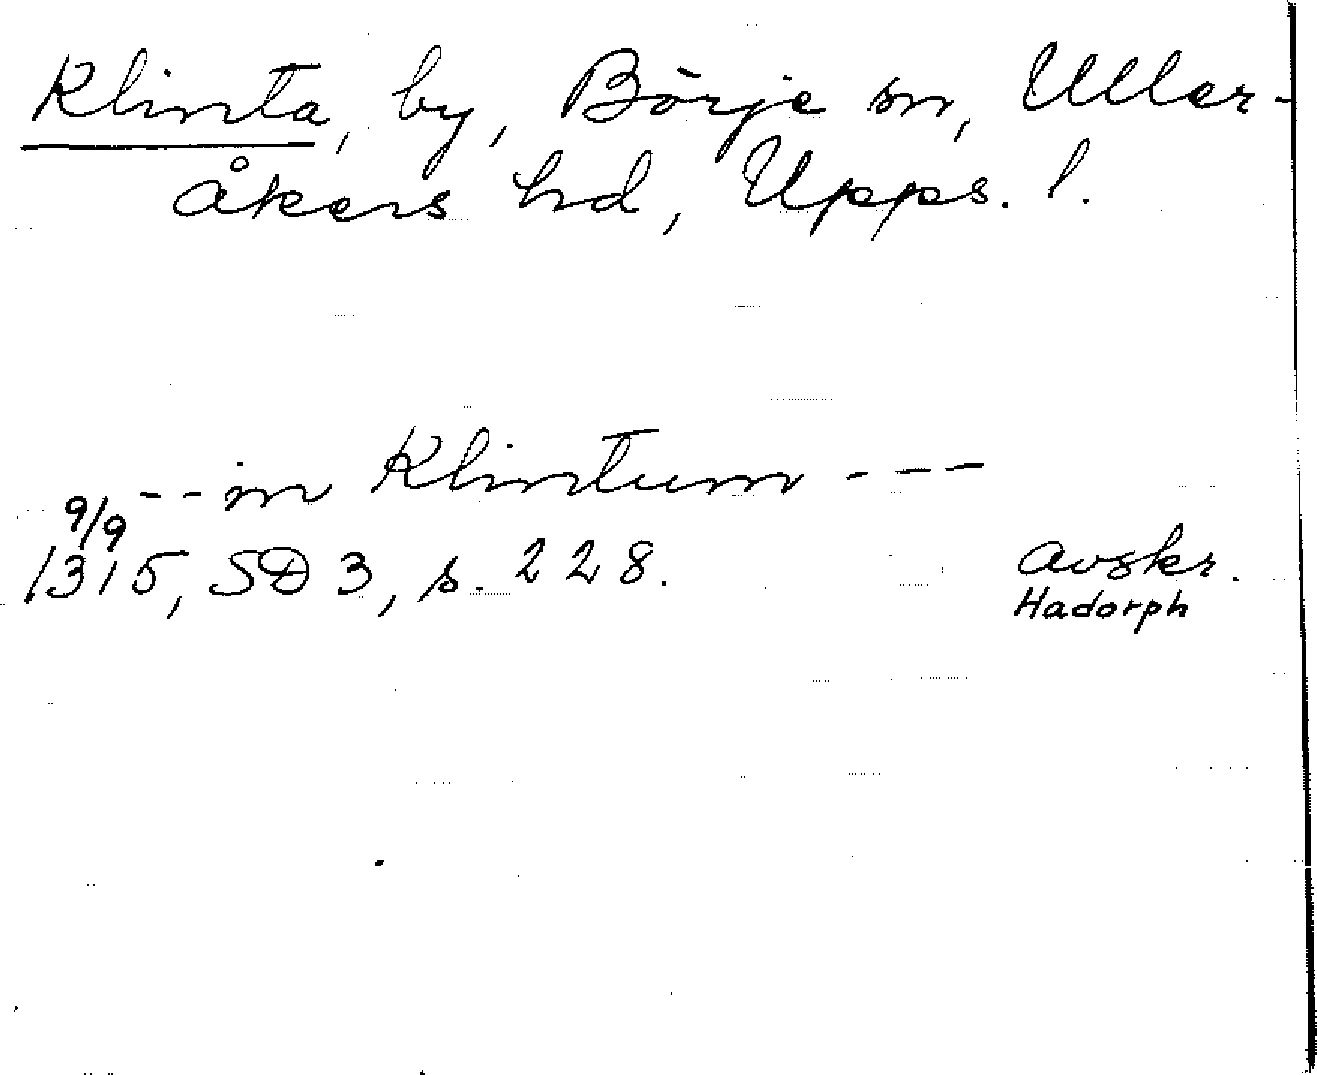 Klinta, by, Börje sn, Uller-
åkers hd, Upps. l.
-- in Klintum ---
9/9
1315, SD 3, s. 228.
Avskr.
Hadorph